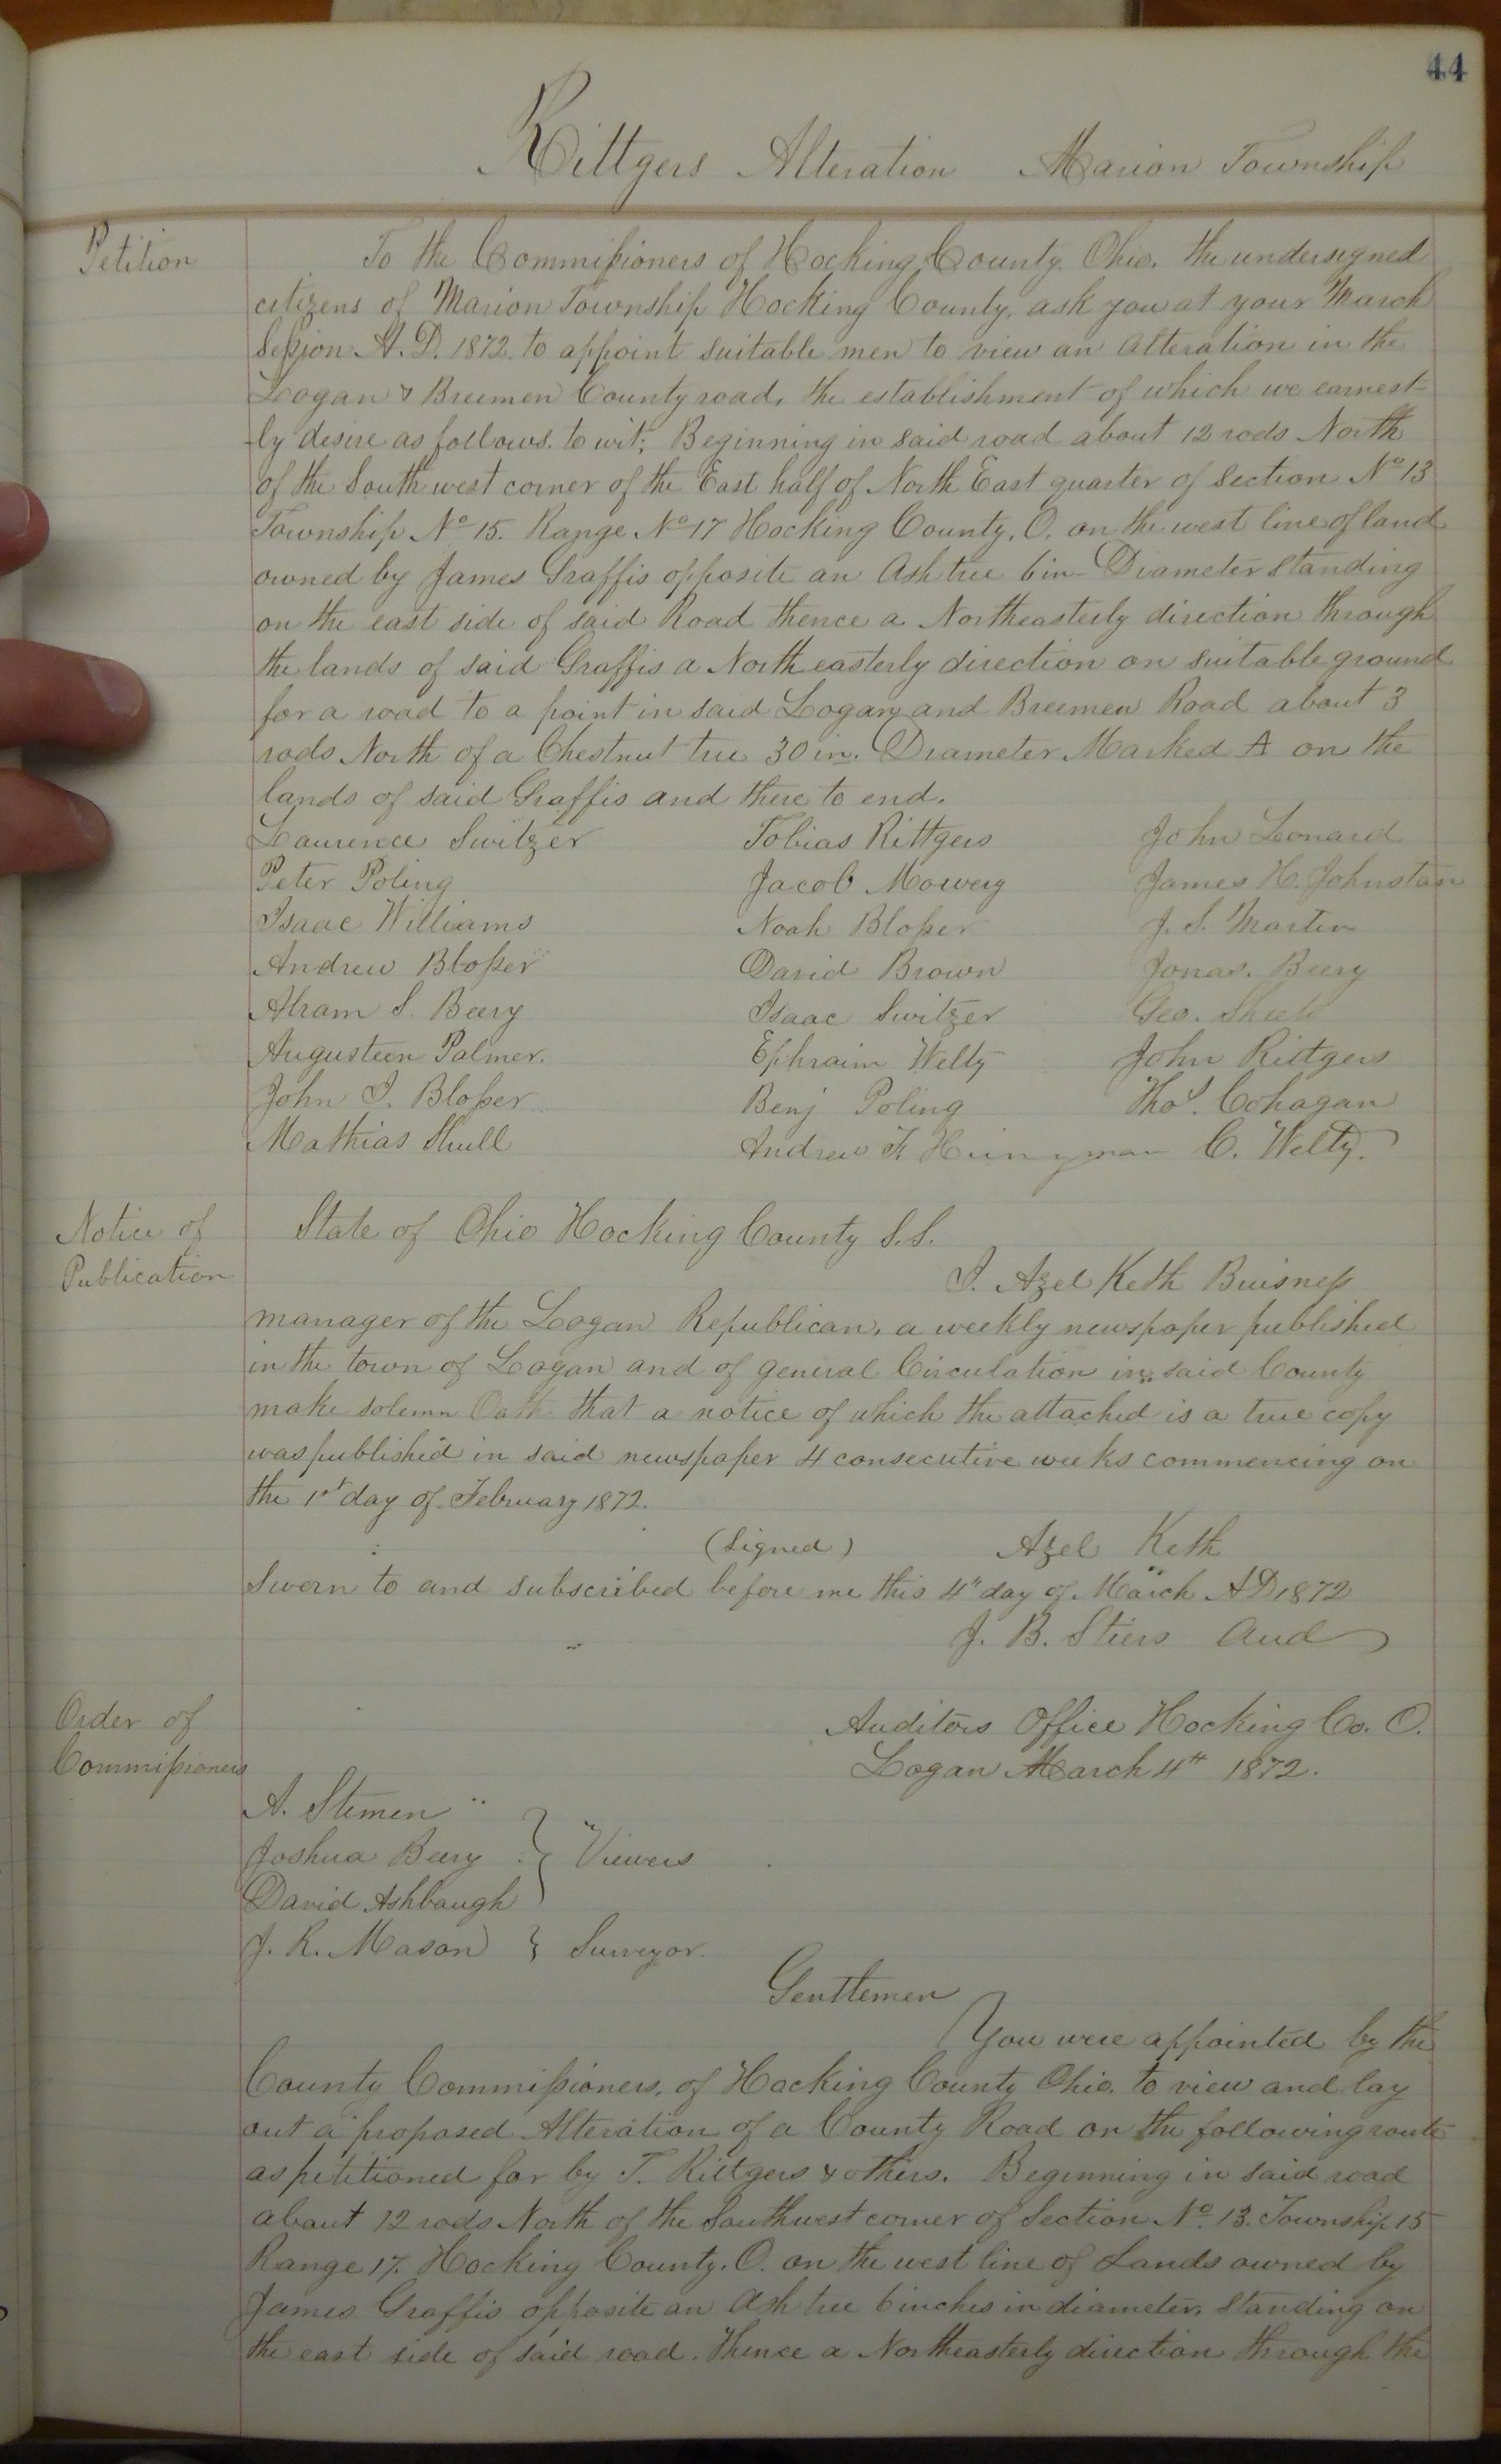 44
Rittgers Alteration Marion Township
Petition
To the Commissioners of Hocking County Ohio. the undersigned
citizens of Marion Township Hocking County, ask you at your March
Session A.D. 1872. to appoint suitable men to view an alteration in the
Logan & Breemen County road, the establishment of which we earnest-
-ly desire as follows. to wit; Beginning in said road about 12 rods North
of the South west corner of the East half of North East quarter of Section No 13
Township No 15. Range No 17 Hocking County, O. on the west line of land
owned by James Graffis opposite an Ash tree 6 in Diameter standing
on the east side of said Road thence a Northeasterly direction through
the lands of said Graffis a North easterly direction on suitable ground
for a road to a point in said Logan and Breemen Road about 3
rods North of a Chestnut tree 30 in. Diameter Marked A on the
lands of said Graffis and there to end.
Laurence Switzer Tobias Rittgers John Leonard
Peter Poling Jacob Mowery James H. Johnstan
Isaac Williams Noah Blosser J. S. Martin
Andrew Blosser David Brown Jonas. Beery
Abram S. Beery Isaac Switzer Geo. Sheets
Augusteen Palmer. Ephraim Welty John Rittgers
John I. Blosser Benj Poling Thos. Cohagan
Mathias Shull Andrew F. C. Welty.
Notice of
Publication
State of Ohio Hocking County S.S.
I. Azel Keth Buisness
manager of the Logan Republican, a weekly newspaper published
in the town of Logan and of general Circulation in said County
make solemn Oath that a notice of which the attached is a true copy
was published in said newspaper 4 consecutive weeks commencing on
the 1st day of February 1872.
(Signed) Azel Keth
Sworn to and subscribed before me this 4" day of March AD 1872
J. B. Stiers Aud
Order of
Commissioners
Auditors Office Hocking Co. O.
Logan March 4th 1872.
A. Stemen
Joshua Beery } Viewers
David Ashbaugh
J. R. Mason } Surveyor.
Gentlemen
You were appointed by the
County Commissioners, of Hocking County Ohio. to view and lay
out a proposed Alteration of a County Road on the following route
as petitioned for by T. Rittgers & others. Beginning in said road
about 12 rods North of the Southwest corner of Section No. 13. Township 15
Range 17. Hocking County. O. on the west line of Lands owned by
James Graffis opposite an Ash tree 6 inches in diameter, standing on
the east side of said road. thence a Northeasterly direction through the